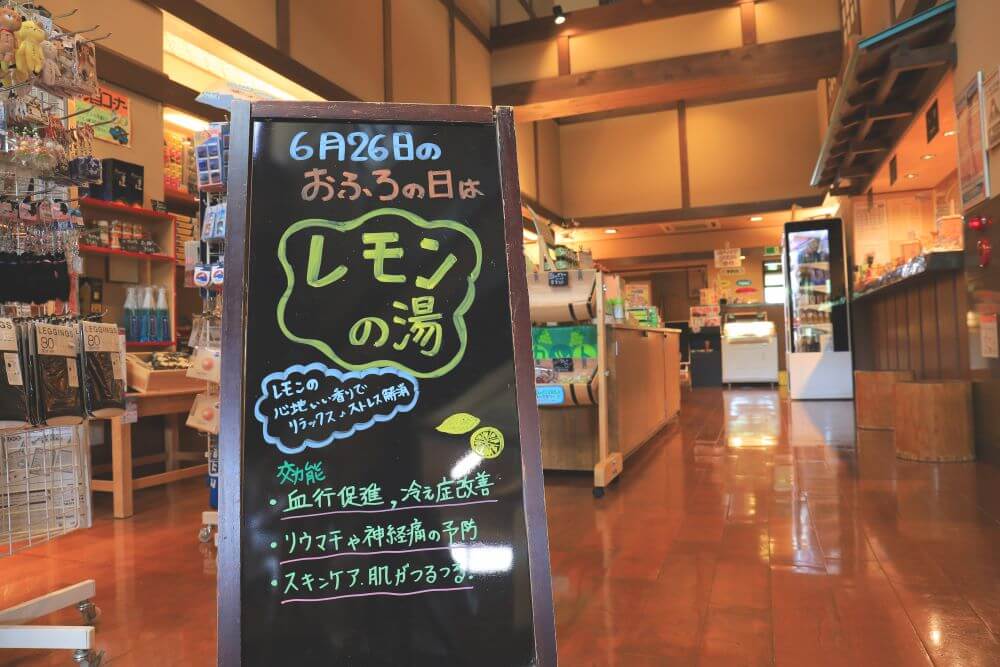 6月26日の
おふろの日は
レモン
の湯
レモンの
心地いい香りで
リラックス♪ストレス解消
効能
・血行促進,冷え症改善
・リウマチや神経痛の予防
・スキンケア.肌がつるつる!
LEGGINGS
80
LEGGINGS
80